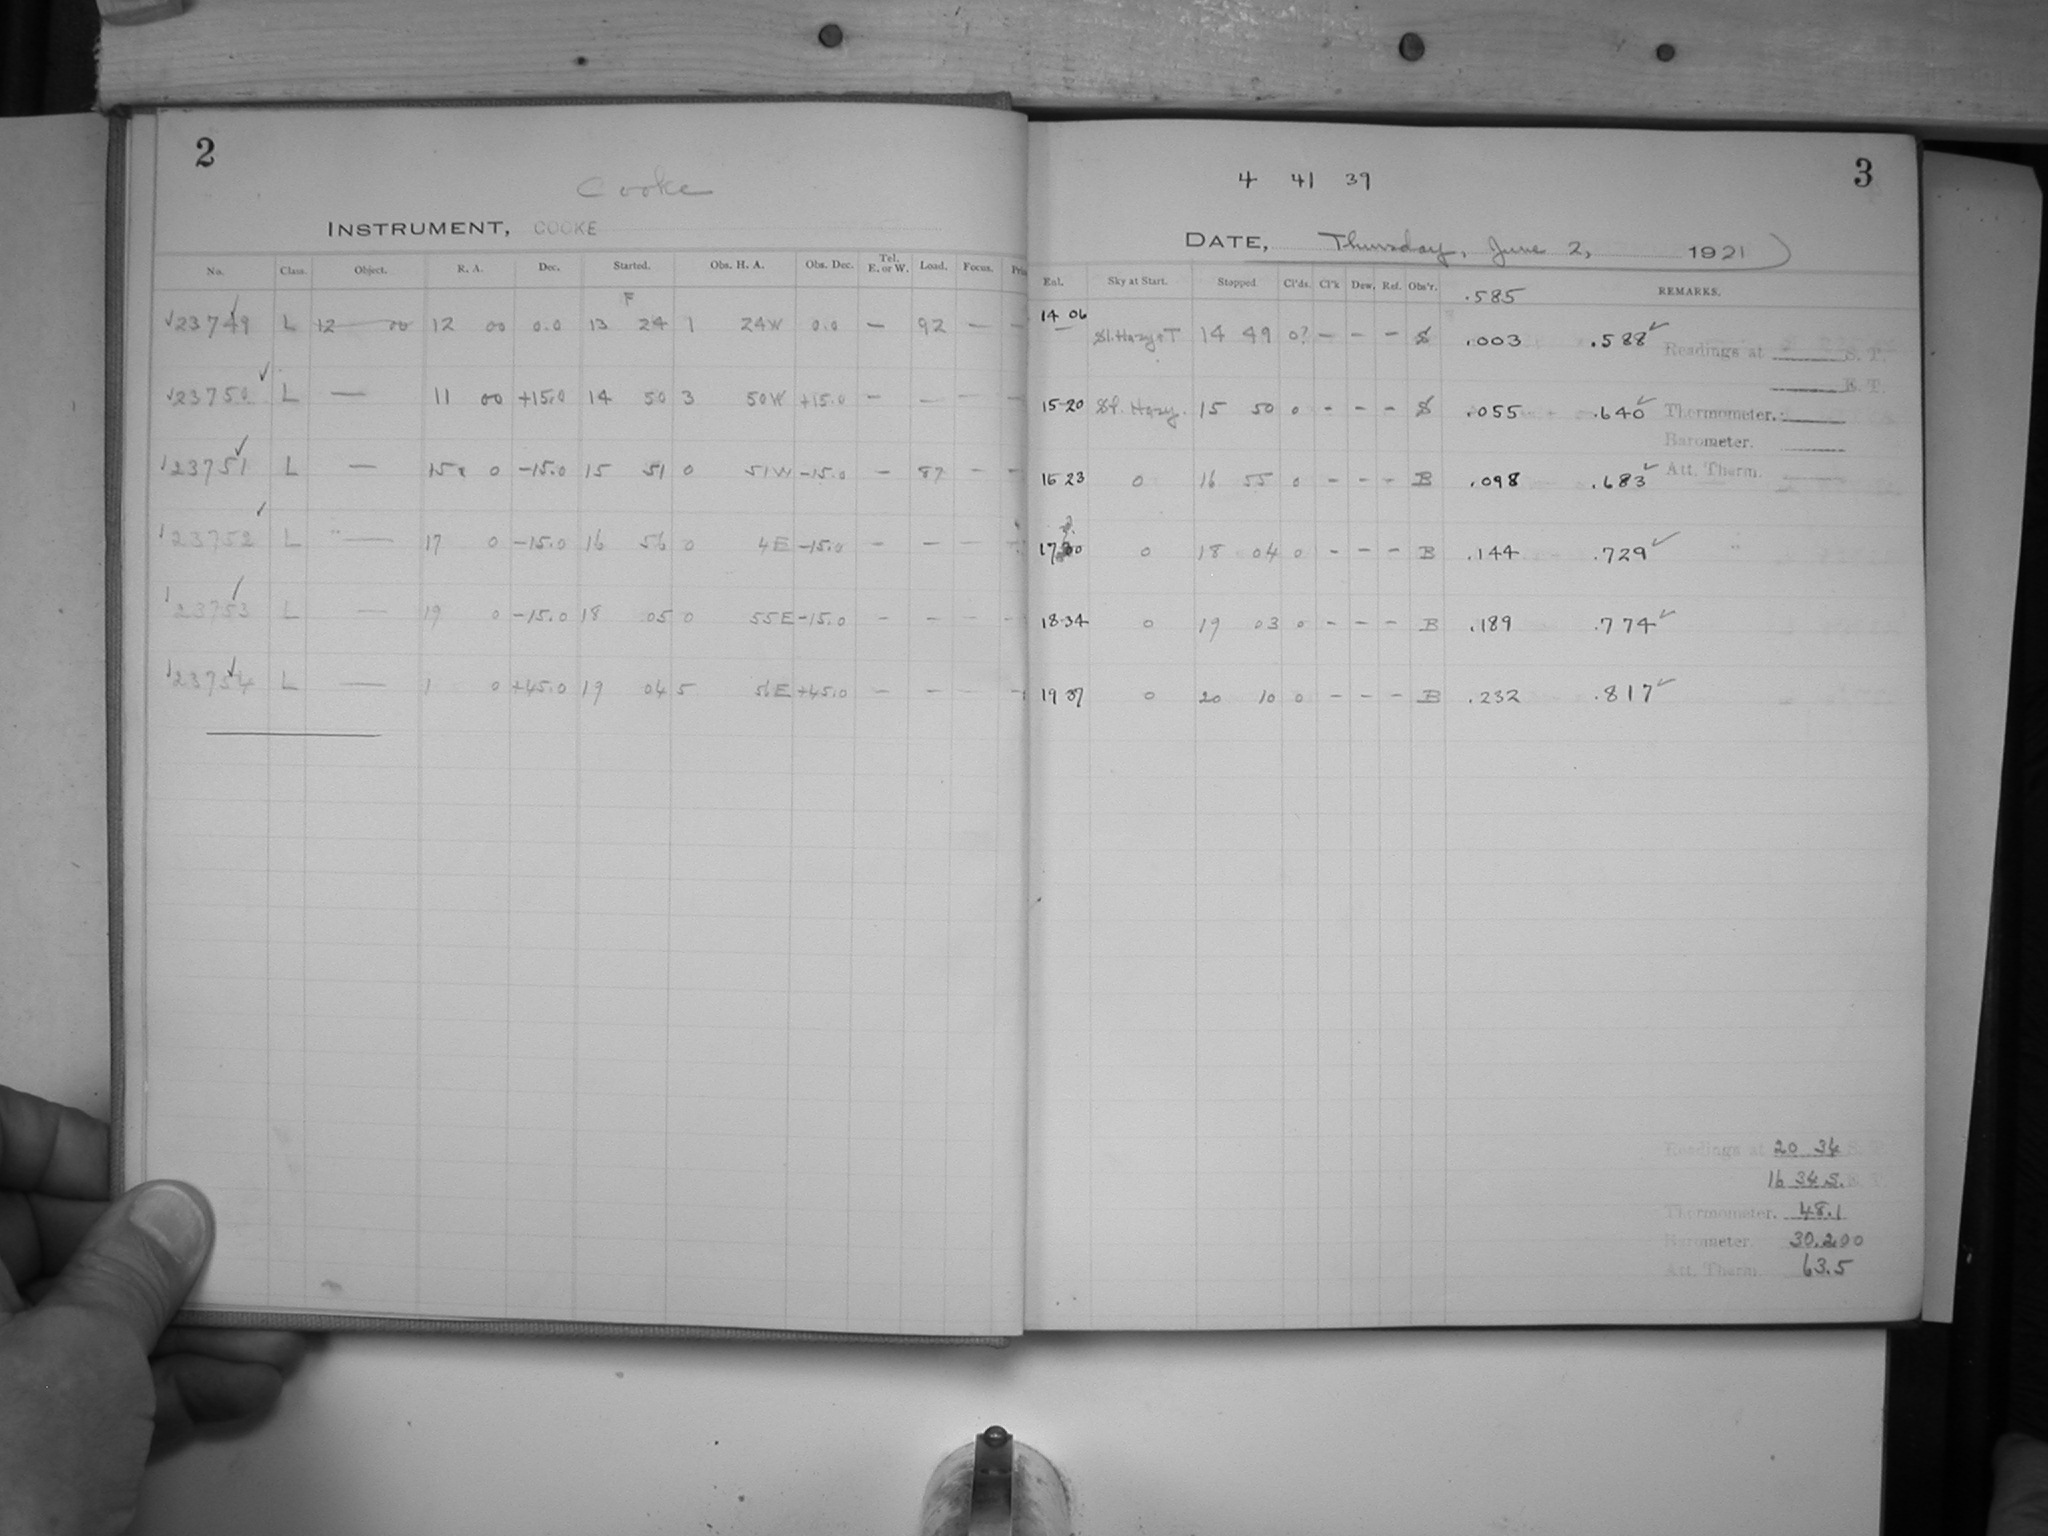 2
Cooke
INSTRUMENT, COOKE
No. Class. Object. R. A. Dec. Started. Obs. H. A. Obs. Dec. Tel. E. or W. Load. Focus.
F
23749 L 12 — 00 12 00 0.0 13 24 1 24W 0.0 — 92 — —
23750 L — 11 00 +15.0 14 50 3 50W +15.0 — — — —
23751 L — 15 0 -15.0 15 51 0 51W -15.0 — 87 — —
23752 L " — 17 0 -15.0 16 56 0 4E -15.0 — — —
23753 L — 19 0 -15.0 18 05 0 55E -15.0 — — — —
23754 L — 1 0 +45.0 19 04 5 56E +45.0 — — — —
3
4 41 39
DATE, Thursday, June 2, 1921
Sky at Start. Stopped Cl'ds. Cl'k Dew. Ref. Obs'r. REMARKS.
.585
14 06 Sl. Hazy + T 14 49 0? — — — S .003 .588
Readings at S. T.
E. T.
15-20 Sl. Hazy. 15 50 0 - - - S .055 .640 Thermometer.
Barometer.
16 23 0 16 55 0 - - - B .098 .683 Att. Therm.
17 0 18 04 0 - - - B .144 .729
18-34 0 19 03 0 - - - B .189 .774
19 37 0 20 10 0 - - - B .232 .817
Readings at 20 34 S. T.
16 34 S. E. T.
Thermometer. 48.1
Barometer. 30.200
Att. Therm. 63.5